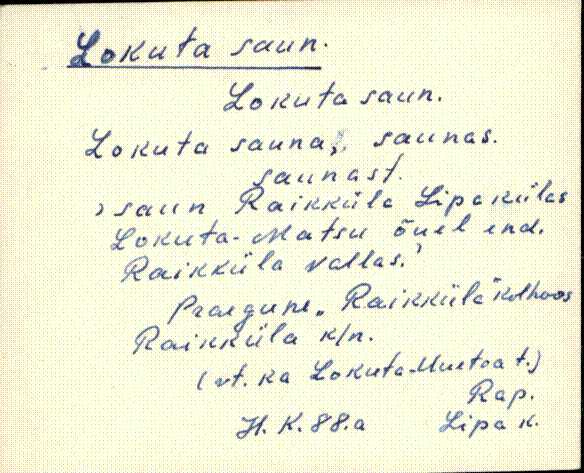 Lokuta saun.
Lokuta saun.
Lokuta sauna, saunas.
saunast.
, saun Raikküla Lipa külas
Lokuta-Matsu õuel end.
Raikküla vallas.'
Praegune „Raikküla" kolhoos
Raikküla k/n.
(vt. ka Lokuta t.)
Rap.
H. K. 88.a Lipa k.